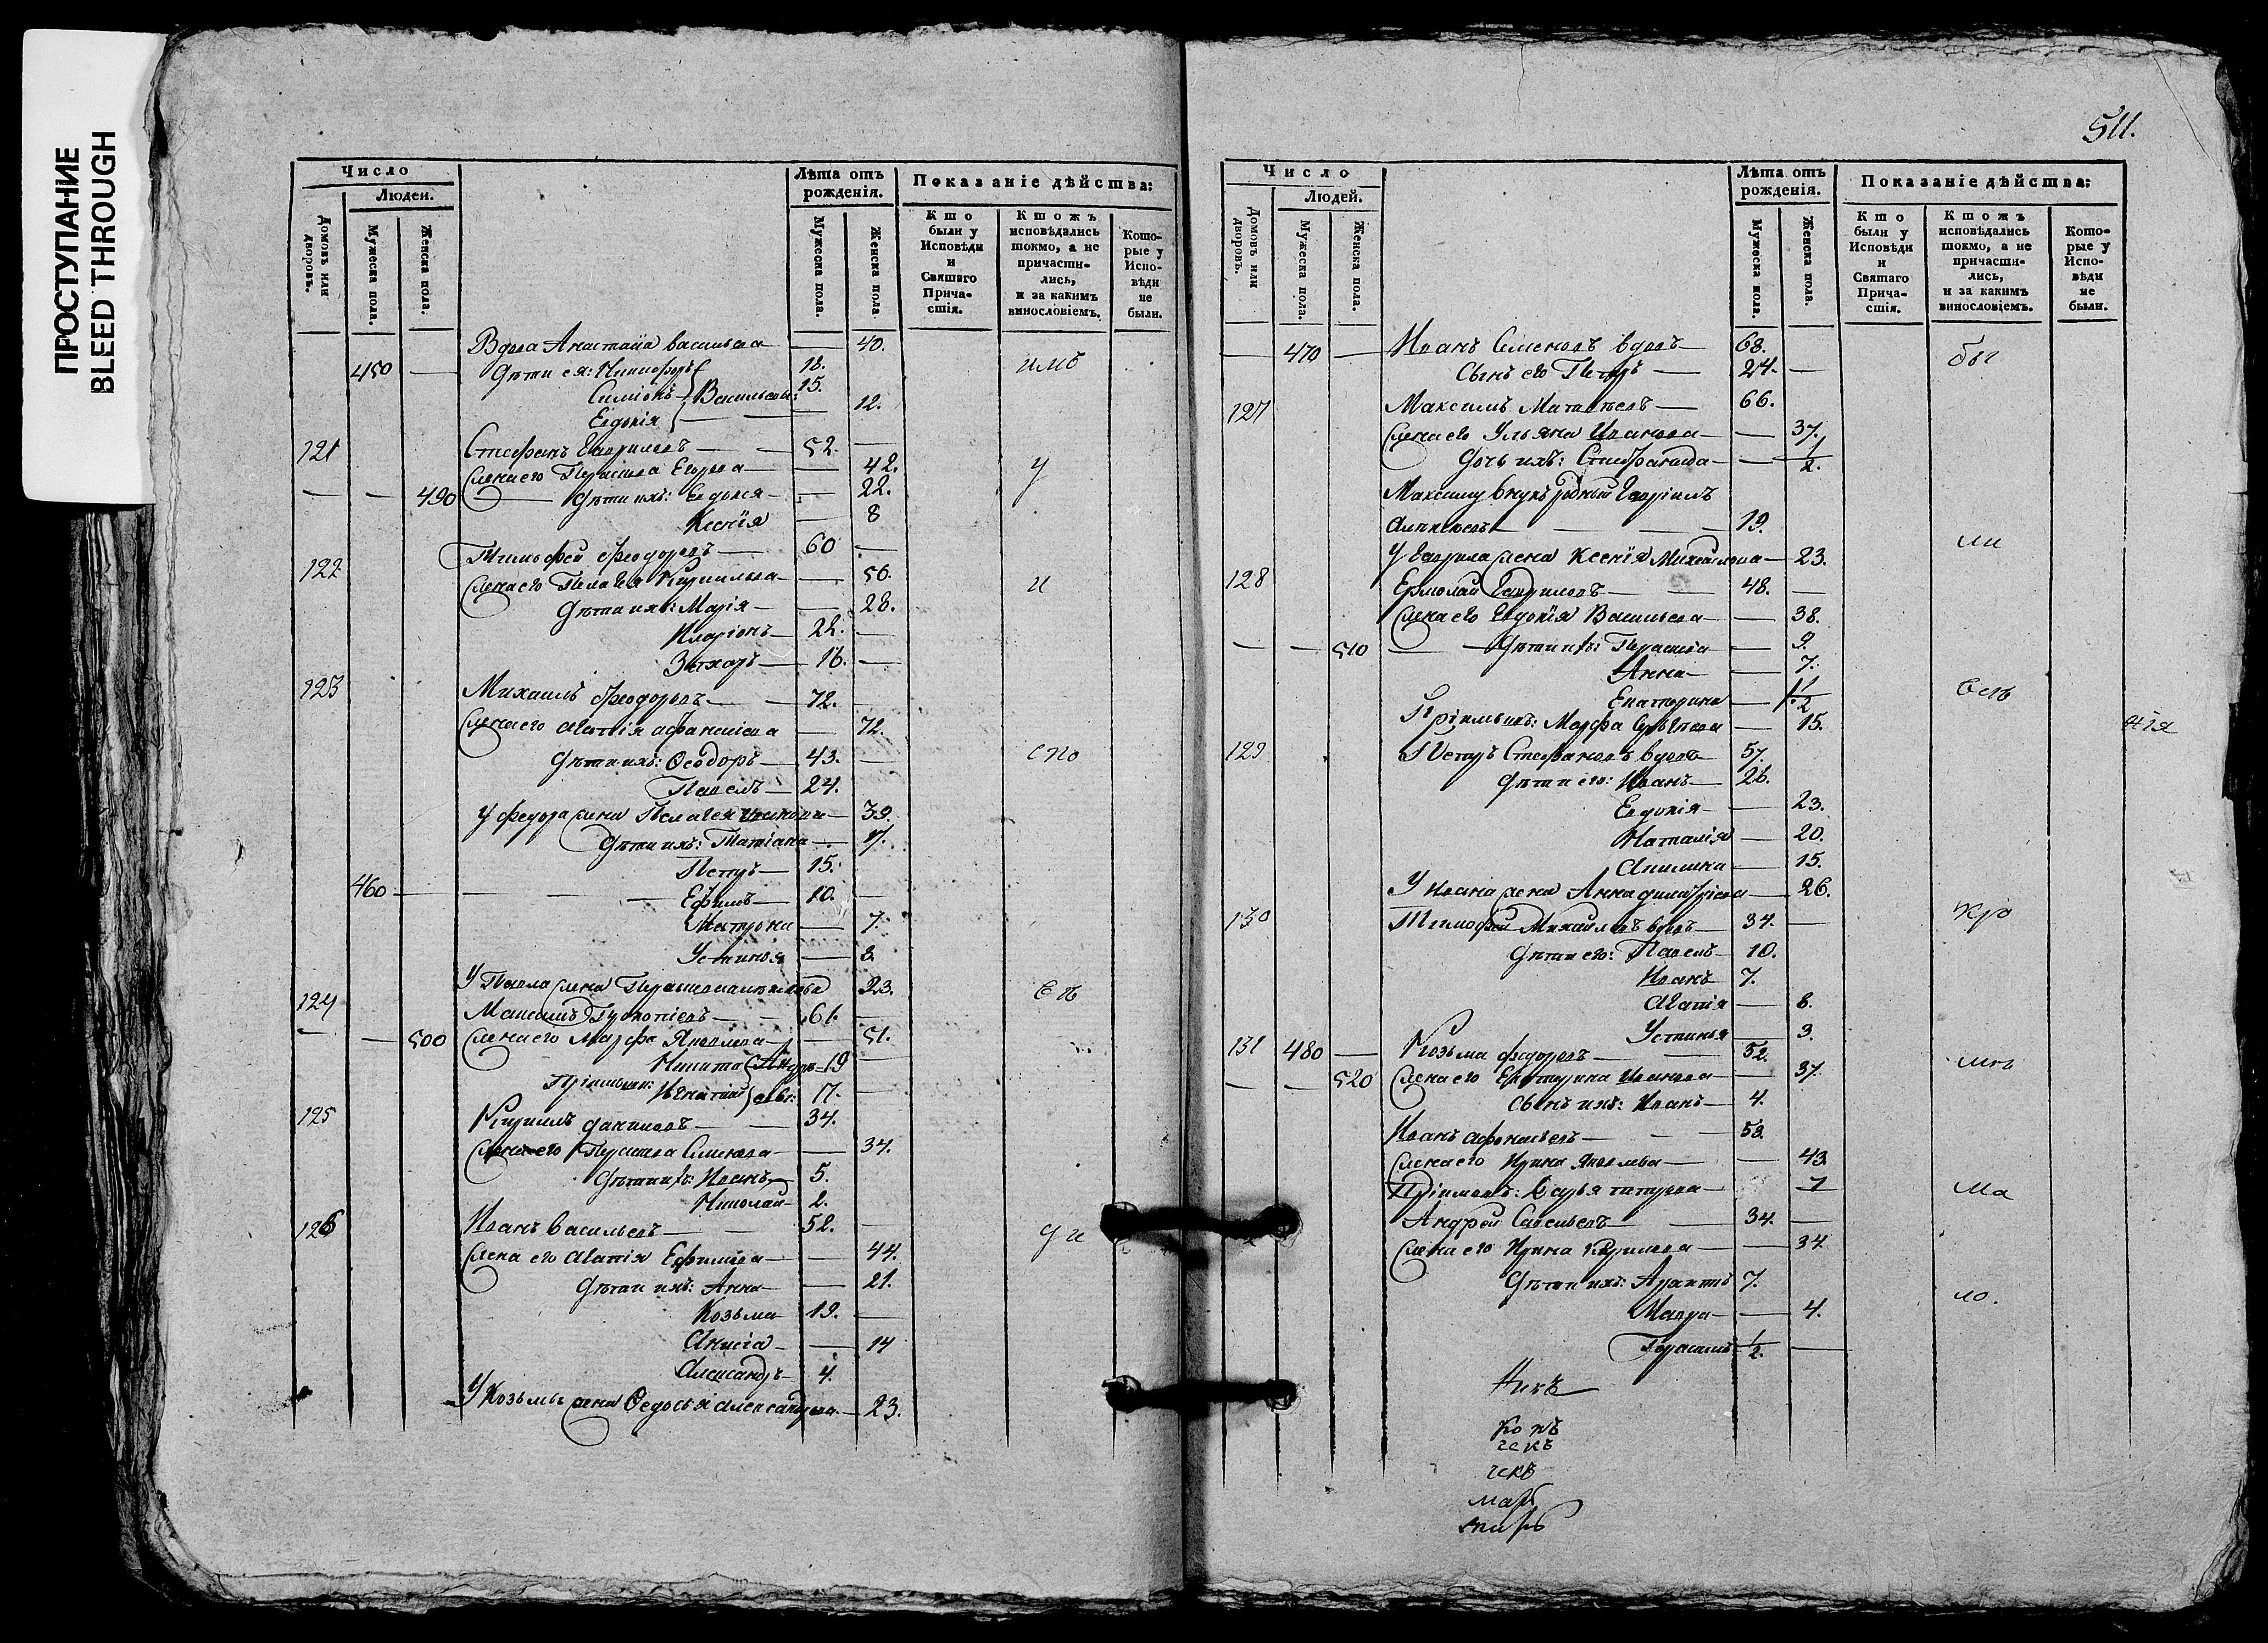 ПРОСТУПАНИЕ
BLEED THROUGH
Число
Людей.
Домовъ или дворовъ.
Мужеска пола.
Женска пола.
Лѣта отъ рожденія.
Мужеска пола.
Женска пола.
Показаніе дѣйства:
Кто были у Исповѣди и Святаго Прича- стія.
Ктожъ исповѣдались токмо, а не причасти- лись, и за какимъ винословіемъ.
Кото- рые у Испо- вѣди не были.
Вдова Анастасіа васильева — 40.
450 — дѣти ея: Никифоръ 18. имб
Симіонъ Васильевы 15.
Евдокія — 12.
121 Стефанъ Гавриловъ — 52. —
жена его Параскева Егорова — 42. у
— — 490 — дѣти ихъ: Евдокія — 22.
Ксенія — 8
Тимофей Феодоровъ — 60 —
122 жена его Пелагея Кирилова — 56. и
дѣти ихъ: Марія — 28.
Иларіонъ — 22. —
Захаръ — 16. —
123 Михаилъ Феодоровъ — 72. —
жена его Агапія афанасіева — 72.
дѣти ихъ: Ѳеодоръ — 43. — спо
Павелъ — 24.
У федора жена Пелагея Иванова — 39.
дѣти ихъ: Татіана — 17.
Петръ — 15.
460 — Ефимъ — 10. —
Матрона — 7.
Устинія — 3.
У Павла жена 23.
124 Максимъ Прокопіевъ — 61. — въ
— — 500 жена его Марфа Яковлева — 51.
Никита Андре- 19 —
Пріимыши: Игнатій евы: 17. —
125 Кирилъ даниловъ — 34.
жена его Параскева Семенова — 34.
дѣти ихъ: Иванъ — 5.
Николай — 2.
126 Иванъ васильевъ — 52. —
жена его Агапія Ефимова — 44.
дѣти ихъ: Анна — 21.
Козьма — 19. —
Анисіа — 14
Александръ — 4.
У Козьмы жена Ѳедосья александрова — 23.
511.
Число
Людей.
Домовъ или дворовъ.
Мужеска пола.
Женска пола.
Лѣта отъ рожденія.
Мужеска пола.
Женска пола.
Показаніе дѣйства:
Кто были у Исповѣди и Святаго Прича- стія.
Ктожъ исповѣдались токмо, а не причасти- лись, и за какимъ винословіемъ.
Кото- рые у Испо- вѣди не были.
— 470 — Иванъ Семеновъ вдовъ — 68. бы
сынъ его Петръ — 24. —
127 Максимъ Матвѣевъ — 66.
жена его Ульяна Иванова — 37.
дочь ихъ: Стефанида — 1/2.
Максиму внукъ родный Гавріилъ
Алексіевъ — 19.
У Гаврила жена Ксенія Михайлова — 23. ли
128 Ермолай Гавриловъ — 48. —
жена его Евдокія Васильева — 38.
— — 510 — дѣти ихъ: Параскева — 9.
Анна — 7.
Екатерина — 1 1/2 всѣ
Пріимышъ: Марфа — 15.
нія
129 Петръ Стефановъ вдовъ 57.
дѣти его: Иванъ — 26.
Евдокія — 23.
Наталія — 20.
Акилина — 15.
У Ивана жена Анна димитріева — 26.
130 Тимофей Михайловъ вдовъ — 34. — кро
дѣти его: Павелъ — 10.
Иванъ 7.
Агапія — 8.
Устинья — 3.
131 480 — Козьма федоровъ — 52.
— — 520 жена его Екатерина Иванова — 37.
сынъ ихъ: Иванъ — 4.
Иванъ афонасьевъ — 53.
жена его Ирина Яковлева — 43
Пріимышъ: Дарья — 7 ма
Андрей Савельевъ — 34. —
жена его Ирина Кирилова — 34
дѣти ихъ: 7.
Мавра — 4. ло.
Герасимъ 1/2. —